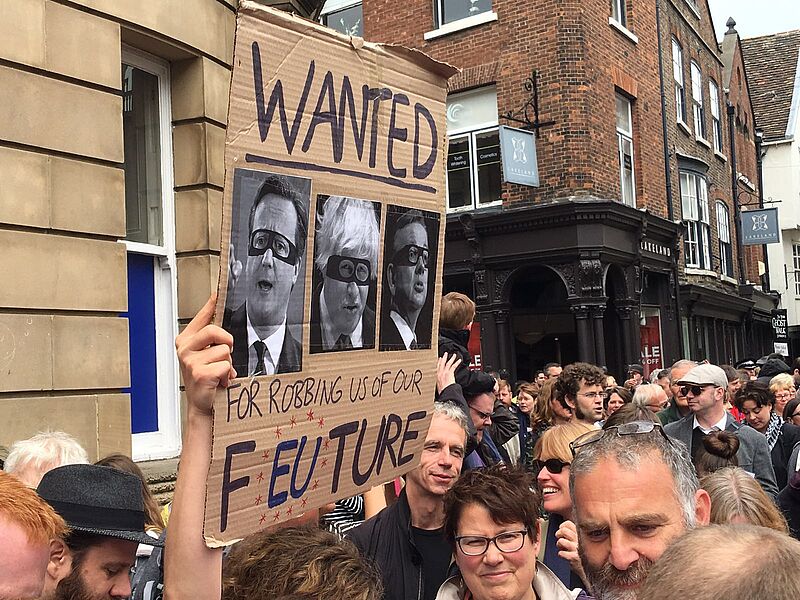 WANTED
FOR ROBBING US OF OUR
FEUTURE
Tooth Whitening
Cosmetics
LAKELAND
LAKELAND
LAKELAND
SALE
GHOST
WALK